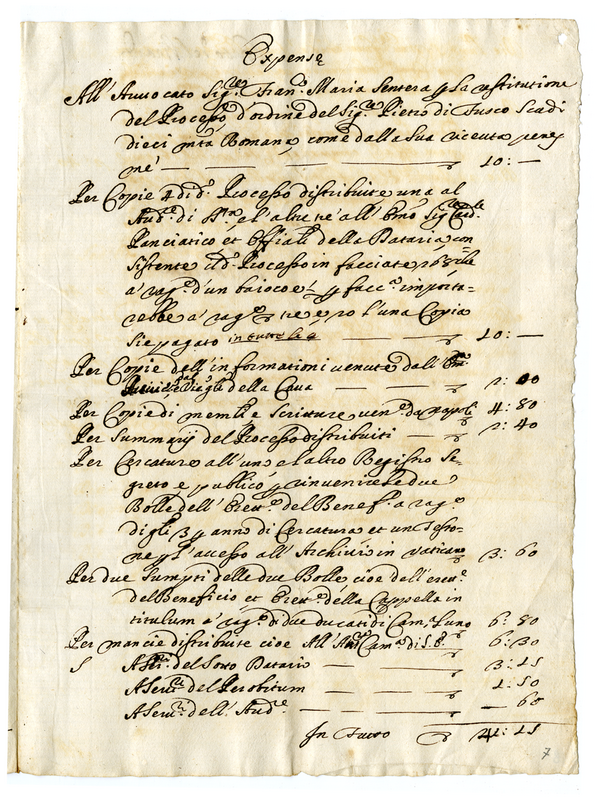 Expensę
All' Avvocato Sig.re Fran.co Maria Sentera p la restitutione
del Processo d'ordine del Sig.re Pietro di Fusco Scudi
dieci mta Romana, come dalla sua riceuta
10: —
Per Copie 4 di d.o Processo distribuite una al
Aud.re di e l'altre tre all' Emo Sig.re Card.le
Panciatico et Offiali della Dataria con
sistente il d.o Processo in facciate
a rag.e d'un baiocco e p facc.a importa=
rebbe a rag.e tre e però l'una Copia
si è pagato in tutte le 4 10: —
Per Copie dell' informationi venute dall'
della Cava 2: 00
Per Copie di memli e scritture ven.e da Napoli 4: 80
Per Summarij del Processo distribuiti — 2: 40
Per Cercature all' uno e l'altro Registro Se=
greto e publico p rinvenire le due
Bolle dell' Erett.e del Benef.o a rag.e
di gli 3 p anno di Cercatura et un Testo=
ne p l'accesso all' Archivio in Vaticano 3: 60
Per due Sumpti delle due Bolle cioe dell' erett.e
del Beneficio et Erett.e della Cappella in
titulum a rag.e di due ducati di Cam.a l'uno 6: 80
Per mancie distribuite cioe All' Cam.a di S. B. 6: 30
A Ser.ri del Sotto Datario — 3: 15
A Ser.ri del Perobitum — 1: 50
A Ser.ri dell' Aud.re — 60
In Tutto 41: 15
7